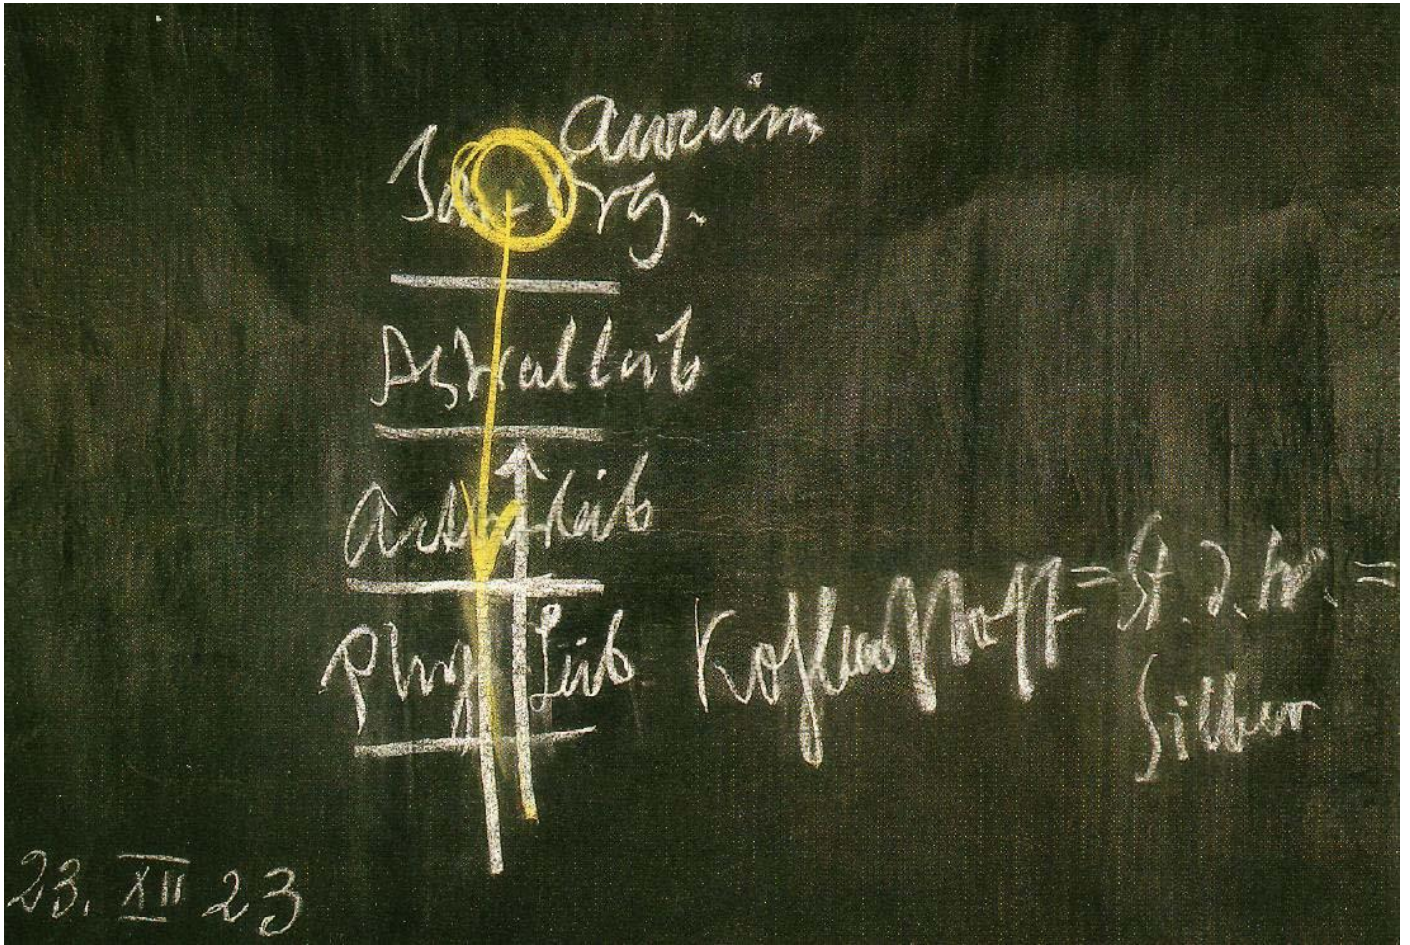 Aurum
Ich-Org.
Astralleib
Aetherleib
Phys Leib Kohlenstoff = St. d. W. =
Silber
23. XII 23